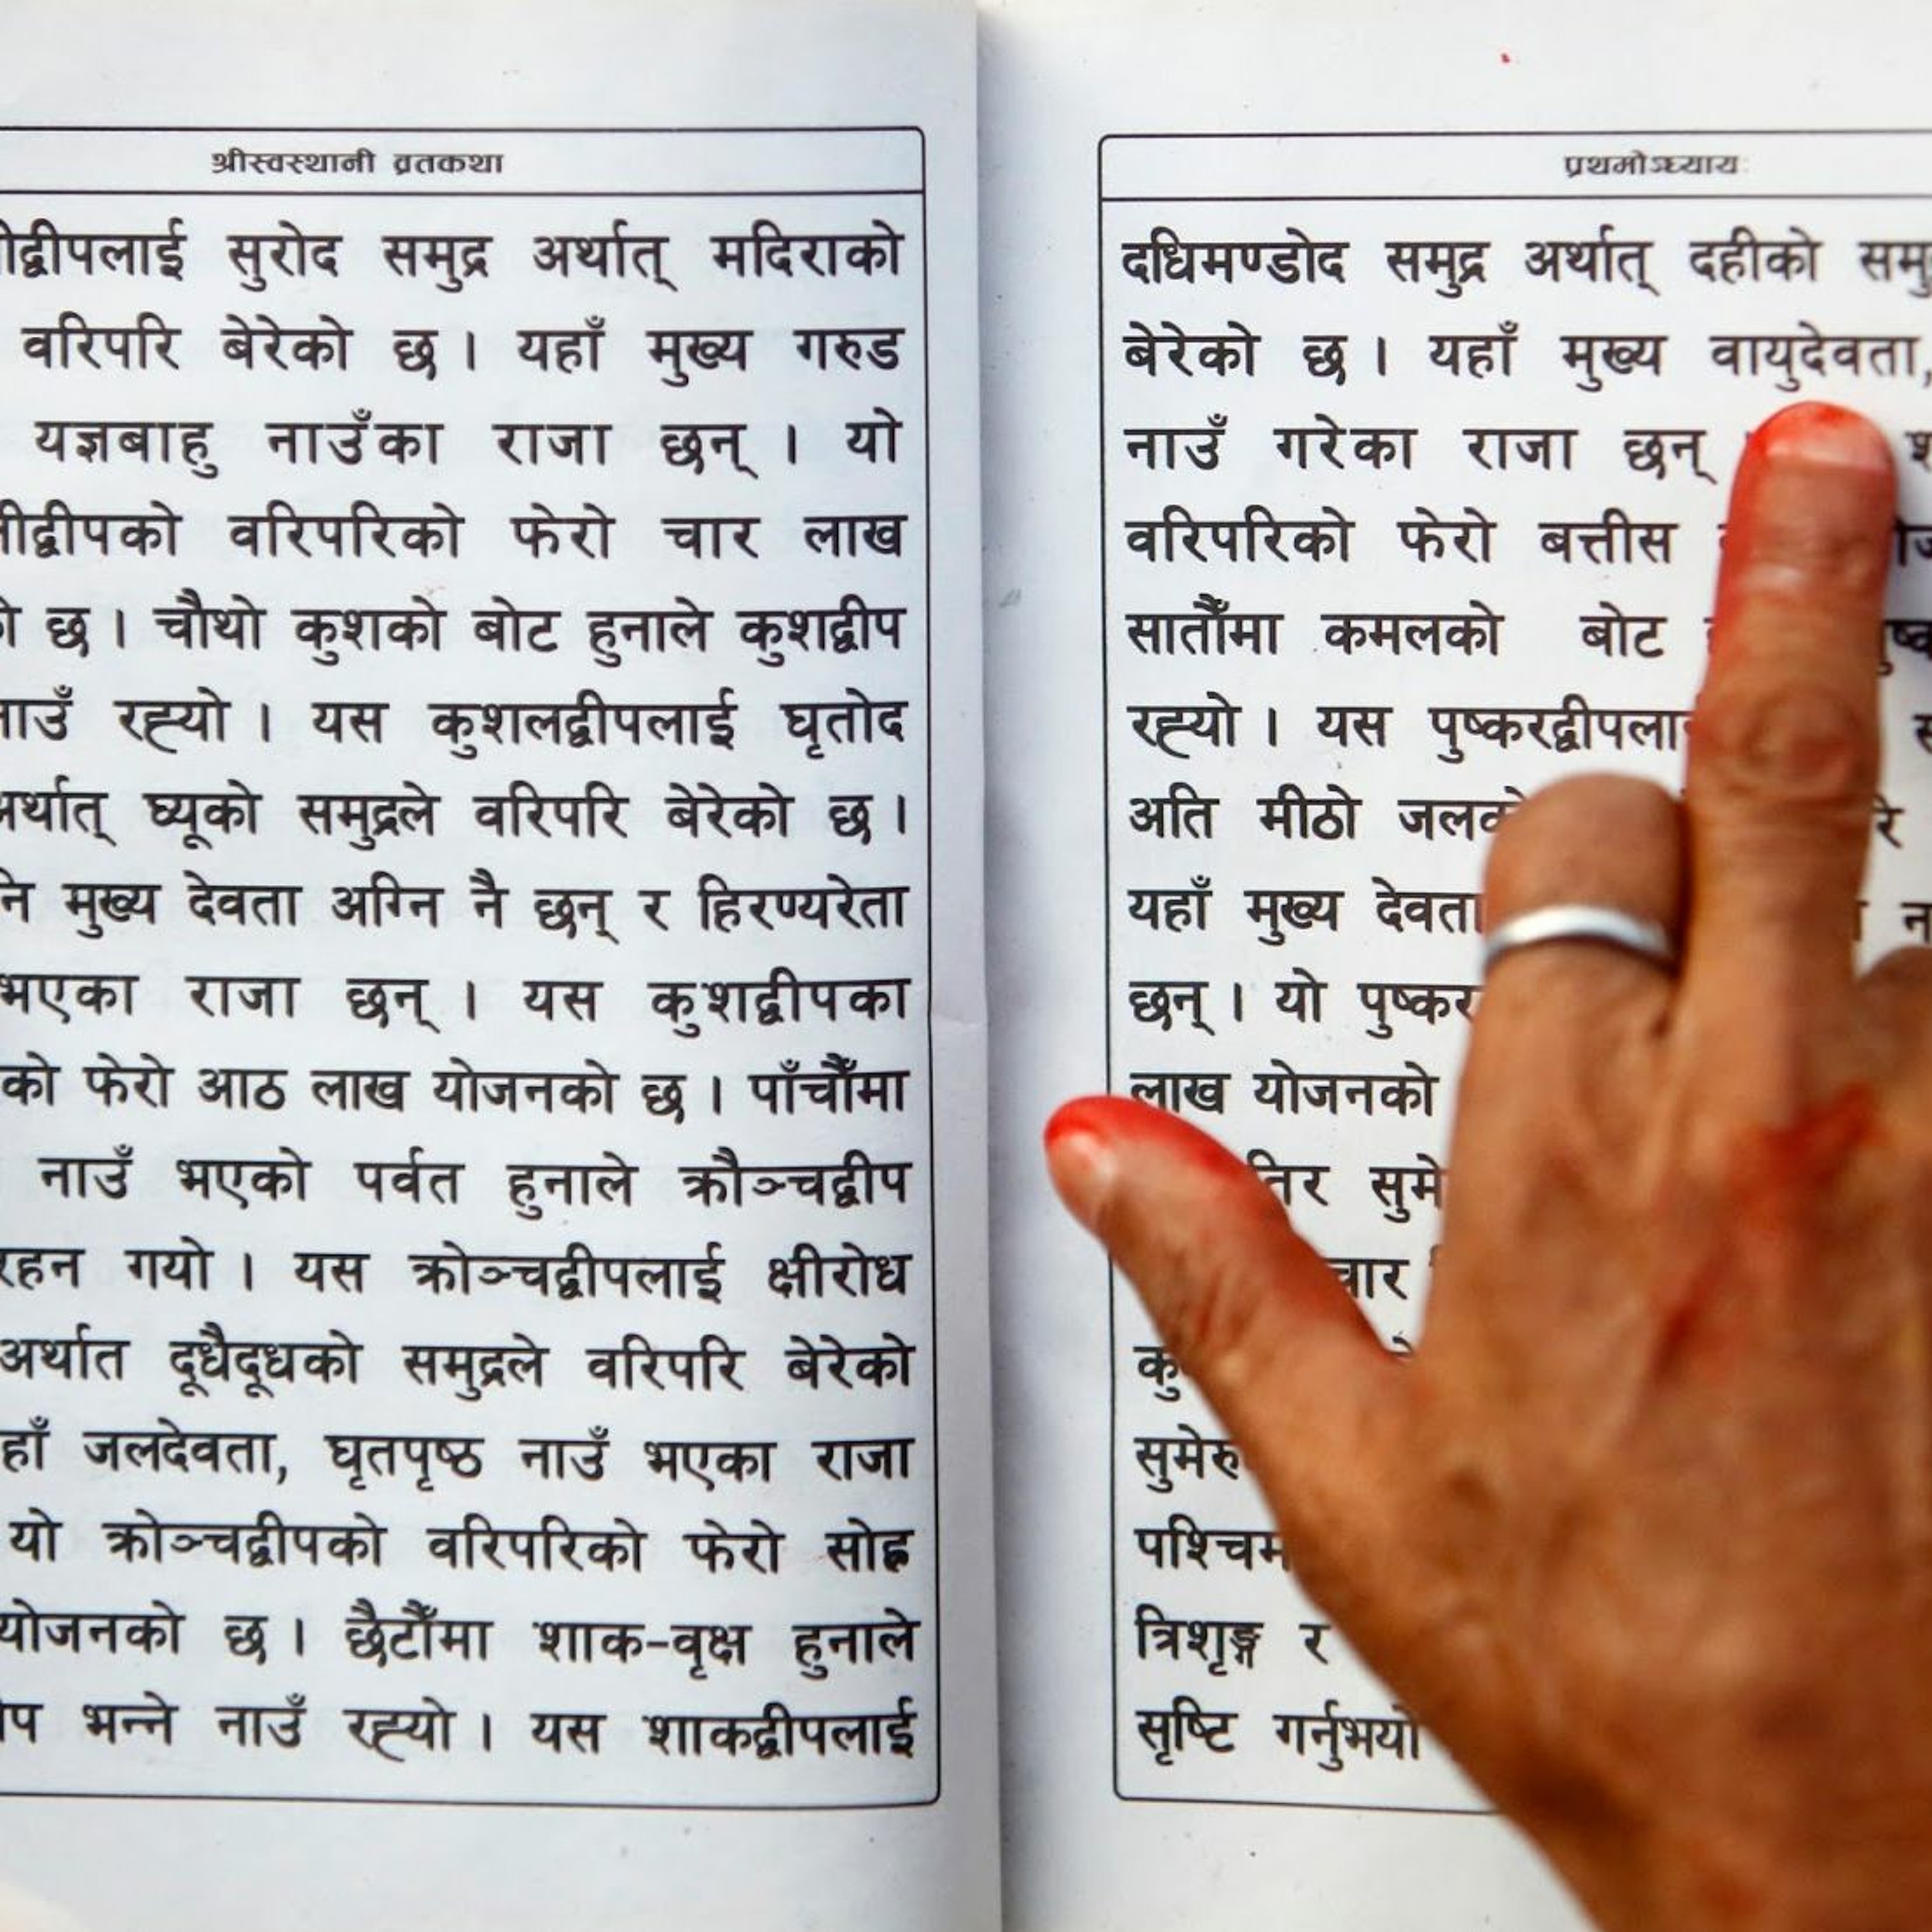 श्रीस्वस्थानी व्रतकथा
सुरोद समुद्र अर्थात् मदिराको
वरिपरि बेरेको छ । यहाँ मुख्य गरुड
यज्ञबाहु नाउँका राजा छन् । यो
वरिपरिको फेरो चार लाख
छ । चौथो कुशको बोट हुनाले कुशद्वीप
रह्यो । यस कुशलद्वीपलाई घृतोद
अर्थात् घ्यूको समुद्रले वरिपरि बेरेको छ ।
मुख्य देवता अग्नि नै छन् र हिरण्यरेता
भएका राजा छन् । यस कुशद्वीपका
को फेरो आठ लाख योजनको छ । पाँचौँमा
नाउँ भएको पर्वत हुनाले क्रौञ्चद्वीप
रहन गयो । यस क्रोञ्चद्वीपलाई क्षीरोध
अर्थात दूधैदूधको समुद्रले वरिपरि बेरेको
जलदेवता, घृतपृष्ठ नाउँ भएका राजा
यो क्रोञ्चद्वीपको वरिपरिको फेरो सोह्र
योजनको छ । छैटौँमा शाक-वृक्ष हुनाले
भन्ने नाउँ रह्यो । यस शाकद्वीपलाई
प्रथमोऽध्यायः
दधिमण्डोद समुद्र अर्थात् दहीको
बेरेको छ । यहाँ मुख्य वायुदेवता,
नाउँ गरेका राजा छन्
वरिपरिको फेरो बत्तीस
सातौँमा कमलको बोट
रह्यो । यस पुष्करद्वीपला
अति मीठो
यहाँ मुख्य देवता
छन् । यो पुष्कर
लाख योजनको
सुमे
चार
कु
सुमेरु
पश्चिम
त्रिशृङ्ग र
सृष्टि गर्नुभयो